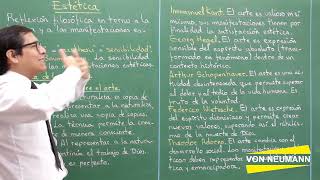 Estética
Reflexión filosófica en torno a la
y a las manifestaciones es-
sensibilidad).
la sensibilidad
estéticas.
el arte.
naturaleza es copia de
representar a la naturaleza,
La técnica permite crear
de manera consciente.
Al representar a la natu-
continúa el trabajo de Dios.
es perfecto.
Immanuel Kant. El arte es valioso por sí
mismo; sus manifestaciones tienen por
finalidad la satisfacción estética.
Georg Hegel. El arte es expresión
sensible del espíritu absoluto (trans-
formado en fenómeno) dentro de un
contexto histórico.
Arthur Schopenhauer. El arte es una
actividad desinteresada que permite superar
el dolor y el tedio de la vida humana. Es
fruto de la voluntad.
Federico Nietzsche. El arte es expresión
del espíritu dionisiaco y permite crear
nuevos valores, superando así el vacío
de la muerte de Dios.
Theodor Adorno. El arte cambia con el
desarrollo social. Las manifestaciones
ticas deben representar
ca y emancipadora.
VON NEUMANN